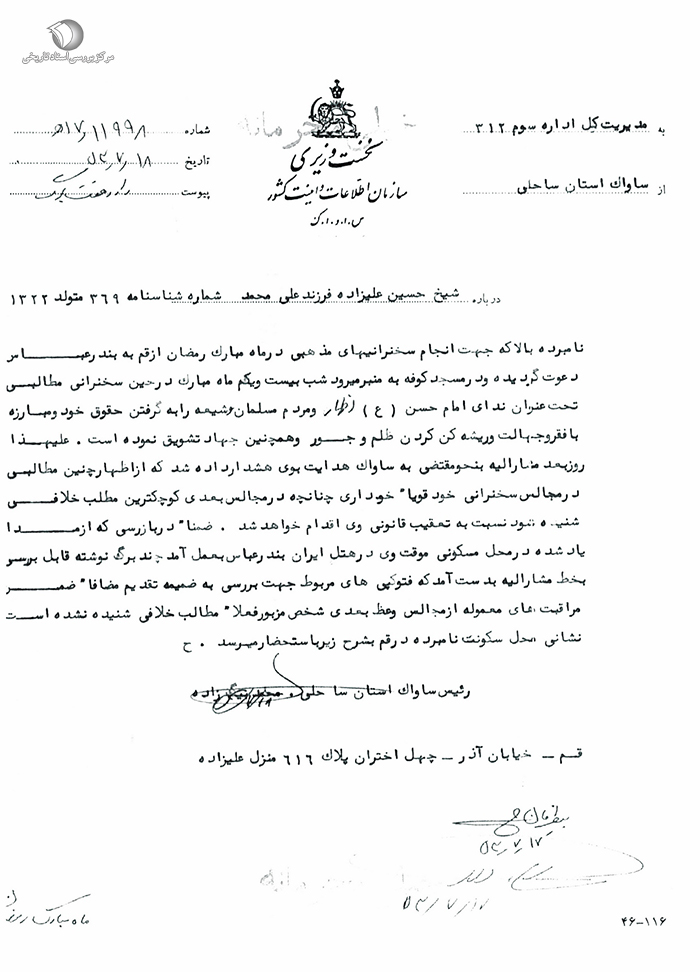 مرکز بررسی اسناد تاریخی
خیلی محرمانه
به مدیریت کل اداره سوم ۳۱۲
نخست وزیری
شماره ۱۱۹۹۸/۱۷ﻫ
از ساواک استان ساحلی
سازمان اطلاعات و امنیت کشور
تاریخ ۵۳/۷/۱۸
س.ا.و.ا.ک
پیوست دارد هفت برگ
درباره شیخ حسین علیزاده فرزند علی محمد شماره شناسنامه ۳۶۹ متولد ۱۳۲۲
نامبرده بالا که جهت انجام سخنرانیهای مذهبی در ماه مبارک رمضان از قم به بندرعباس
دعوت گردیده و در مسجد کوفه به منبر میرود شب بیست ویکم ماه مبارک در حین سخنرانی مطالبی
تحت عنوان ندای امام حسن ( ع ) اظهار و مردم مسلمان و شیعه را به گرفتن حقوق خود و مبارزه
با فقر و جهالت و ریشه کن کردن ظلم و جور و همچنین جهاد تشویق نموده است . علیهذا
روز بعد مشارالیه بنحو مقتضی به ساواک هدایت بوی هشدار داده شد که از اظهار چنین مطالبی
در مجالس سخنرانی خود قویا" خود داری چنانچه در مجالس بعدی کوچکترین مطلب خلافی
شنیده شود نسبت به تعقیب قانونی وی اقدام خواهد شد . ضمنا" در بازرسی که از مدا
یاد شده در محل مسکونی موقت وی در هتل ایران بندرعباس بعمل آمد چند برگ نوشته قابل بررسی
بخط مشارالیه بدست آمد که فتوکپی های مربوط جهت بررسی به ضمیمه تقدیم مضافا" ضمن
مراقبت های معموله از مجالس وعظ بعدی شخص مزبور فعلا" مطالب خلافی شنیده نشده است
نشانی محل سکونت نامبرده در قم بشرح زیر باستحضار میرسد . ح
رئیس ساواک استان ساحلی
قم - خیابان آذر - چهل اختران پلاک ۶۱۶ منزل علیزاده
۵۳/۷/۱۷
۵۳/۷/۱۷
ماه مبارک رمضان
۴۶-۱۱۶